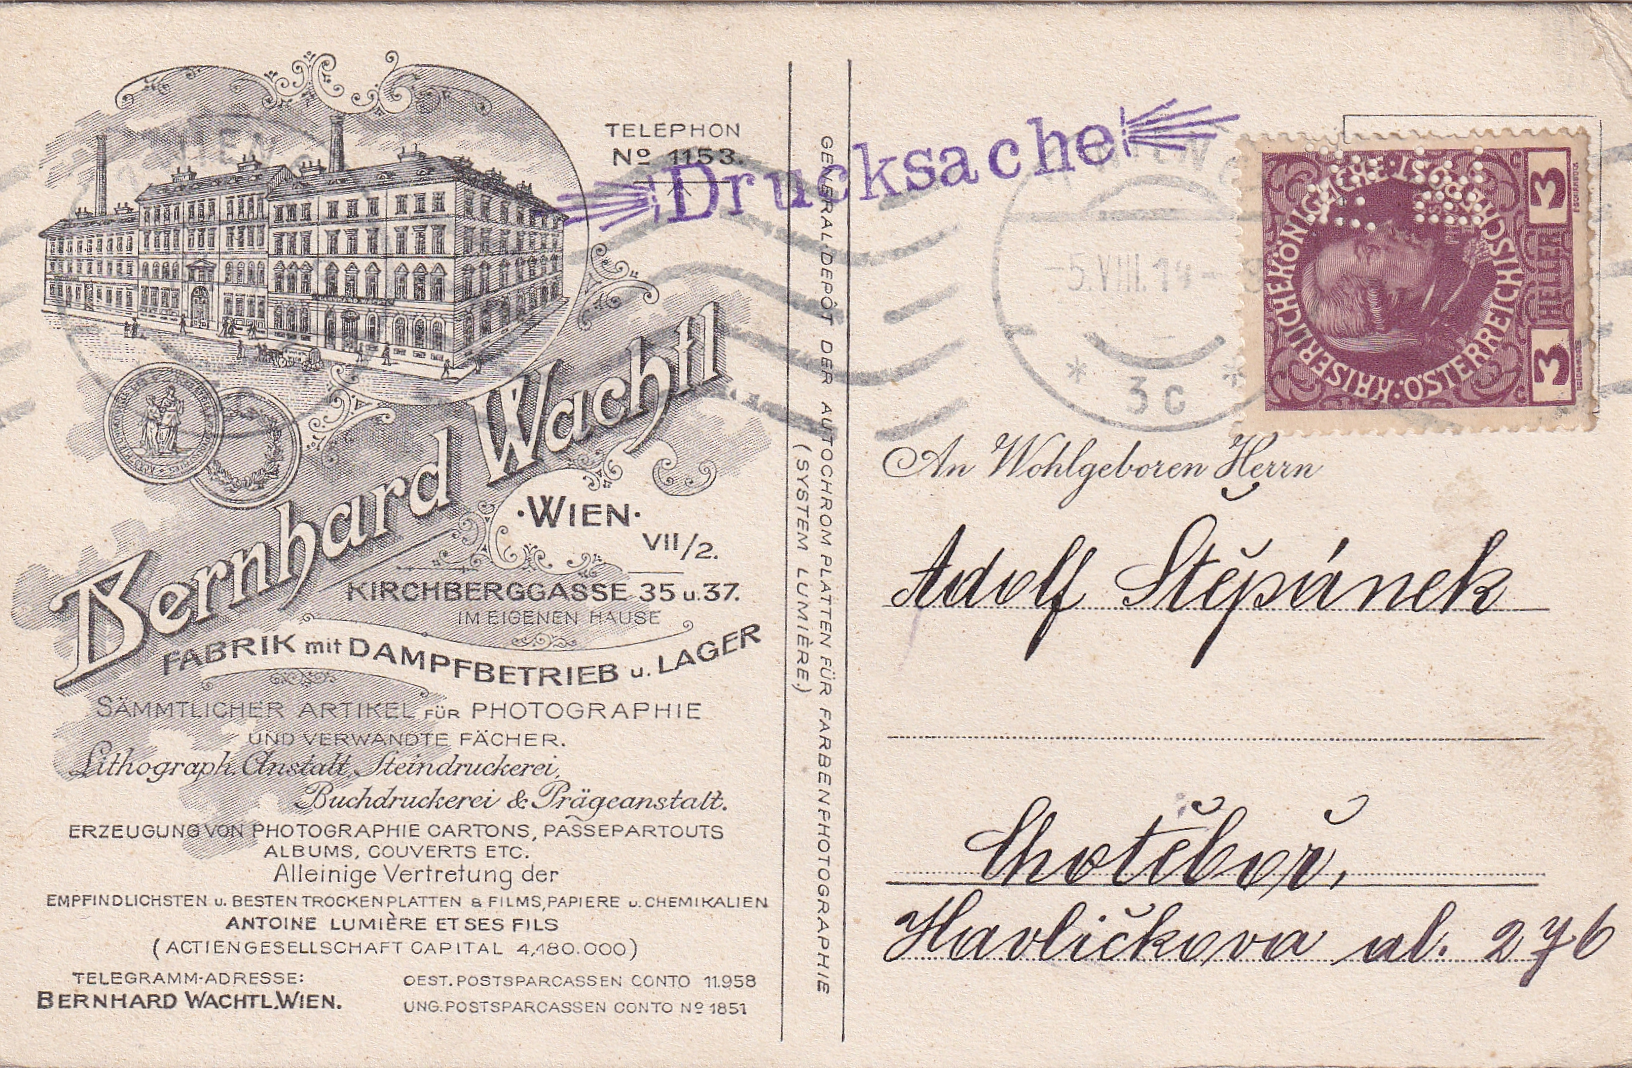 TELEPHON
No 1153.
Drucksache
WIEN
-5.VIII.14-
* 3c *
KAISERLICHE KÖNIGLICHE ÖSTERREICHISCHE POST
3 HELLER 3
Bernhard Wachtl
·WIEN·
VII/2.
KIRCHBERGGASSE 35 u. 37.
IM EIGENEN HAUSE
FABRIK mit DAMPFBETRIEB u. LAGER
SÄMMTLICHER ARTIKEL FÜR PHOTOGRAPHIE
UND VERWANDTE FÄCHER.
Lithograph. Anstalt, Steindruckerei,
Buchdruckerei & Prägeanstalt.
ERZEUGUNG VON PHOTOGRAPHIE CARTONS, PASSEPARTOUTS
ALBUMS, COUVERTS ETC.
Alleinige Vertretung der
EMPFINDLICHSTEN u. BESTEN TROCKENPLATTEN & FILMS, PAPIERE u. CHEMIKALIEN
ANTOINE LUMIÈRE ET SES FILS
(ACTIENGESELLSCHAFT CAPITAL 4,180.000)
TELEGRAMM-ADRESSE:
BERNHARD WACHTL, WIEN.
OEST. POSTSPARCASSEN CONTO 11.958
UNG. POSTSPARCASSEN CONTO No 1851
GENERALDEPÔT DER AUTOCHROM PLATTEN FÜR FARBENPHOTOGRAPHIE
(SYSTEM LUMIÈRE.)
An Wohlgeboren Herrn
Adolf Štěpánek
Chotěboř,
Havlíčkova ul. 276